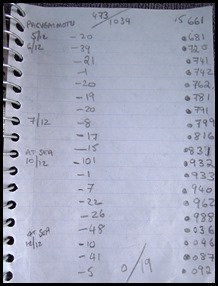 473/1034 15661
5/12 -20 •681
6/12 -39 •720
-21 •741
-1 •742
-20 •762
-19 •781
•791
7/12 -8 •799
-17 •816
AT SEA -15 •831
10/12 -101 •932
-1 •933
-7 •940
-22 •962
-26 •988
AT SEA -48 •036
-10 •046
-41 •087
-5 0/19 •092